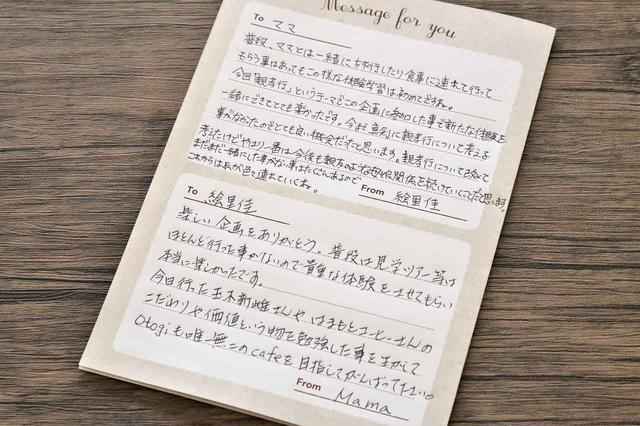 Message for you
To ママ
普段、ママとは一緒に旅行したり食事に連れて行って
もらう事はあってもこの様な体験学習は初めてですね。
今回「親孝行」というテーマでこの企画に参加した事で新たな体験を
一緒にできてとても楽かったです。今まで真剣に親孝行について考える
事がなかったのでとても良い機会だったと思います。親孝行について改めて
考えたけどやはり一番は今後も親友のような母娘関係を続けていくことだと思います
まだまだ一緒にした事がない事はたくさんあるので
これからは私が色々連れていくね。
From 絵里佳
To 絵里佳
楽しい企画をありがとう。普段は見学ツアー等は
ほとんど行った事がないので貴重な体験をさせてもらい
本当に楽しかったです。
今日行った玉木新雌さんや、はまもとコーヒーさんの
こだわりや価値という物を勉強した事を生かして
Otogiも唯一無二のcafeを目指してがんばって下さい。
From Mama